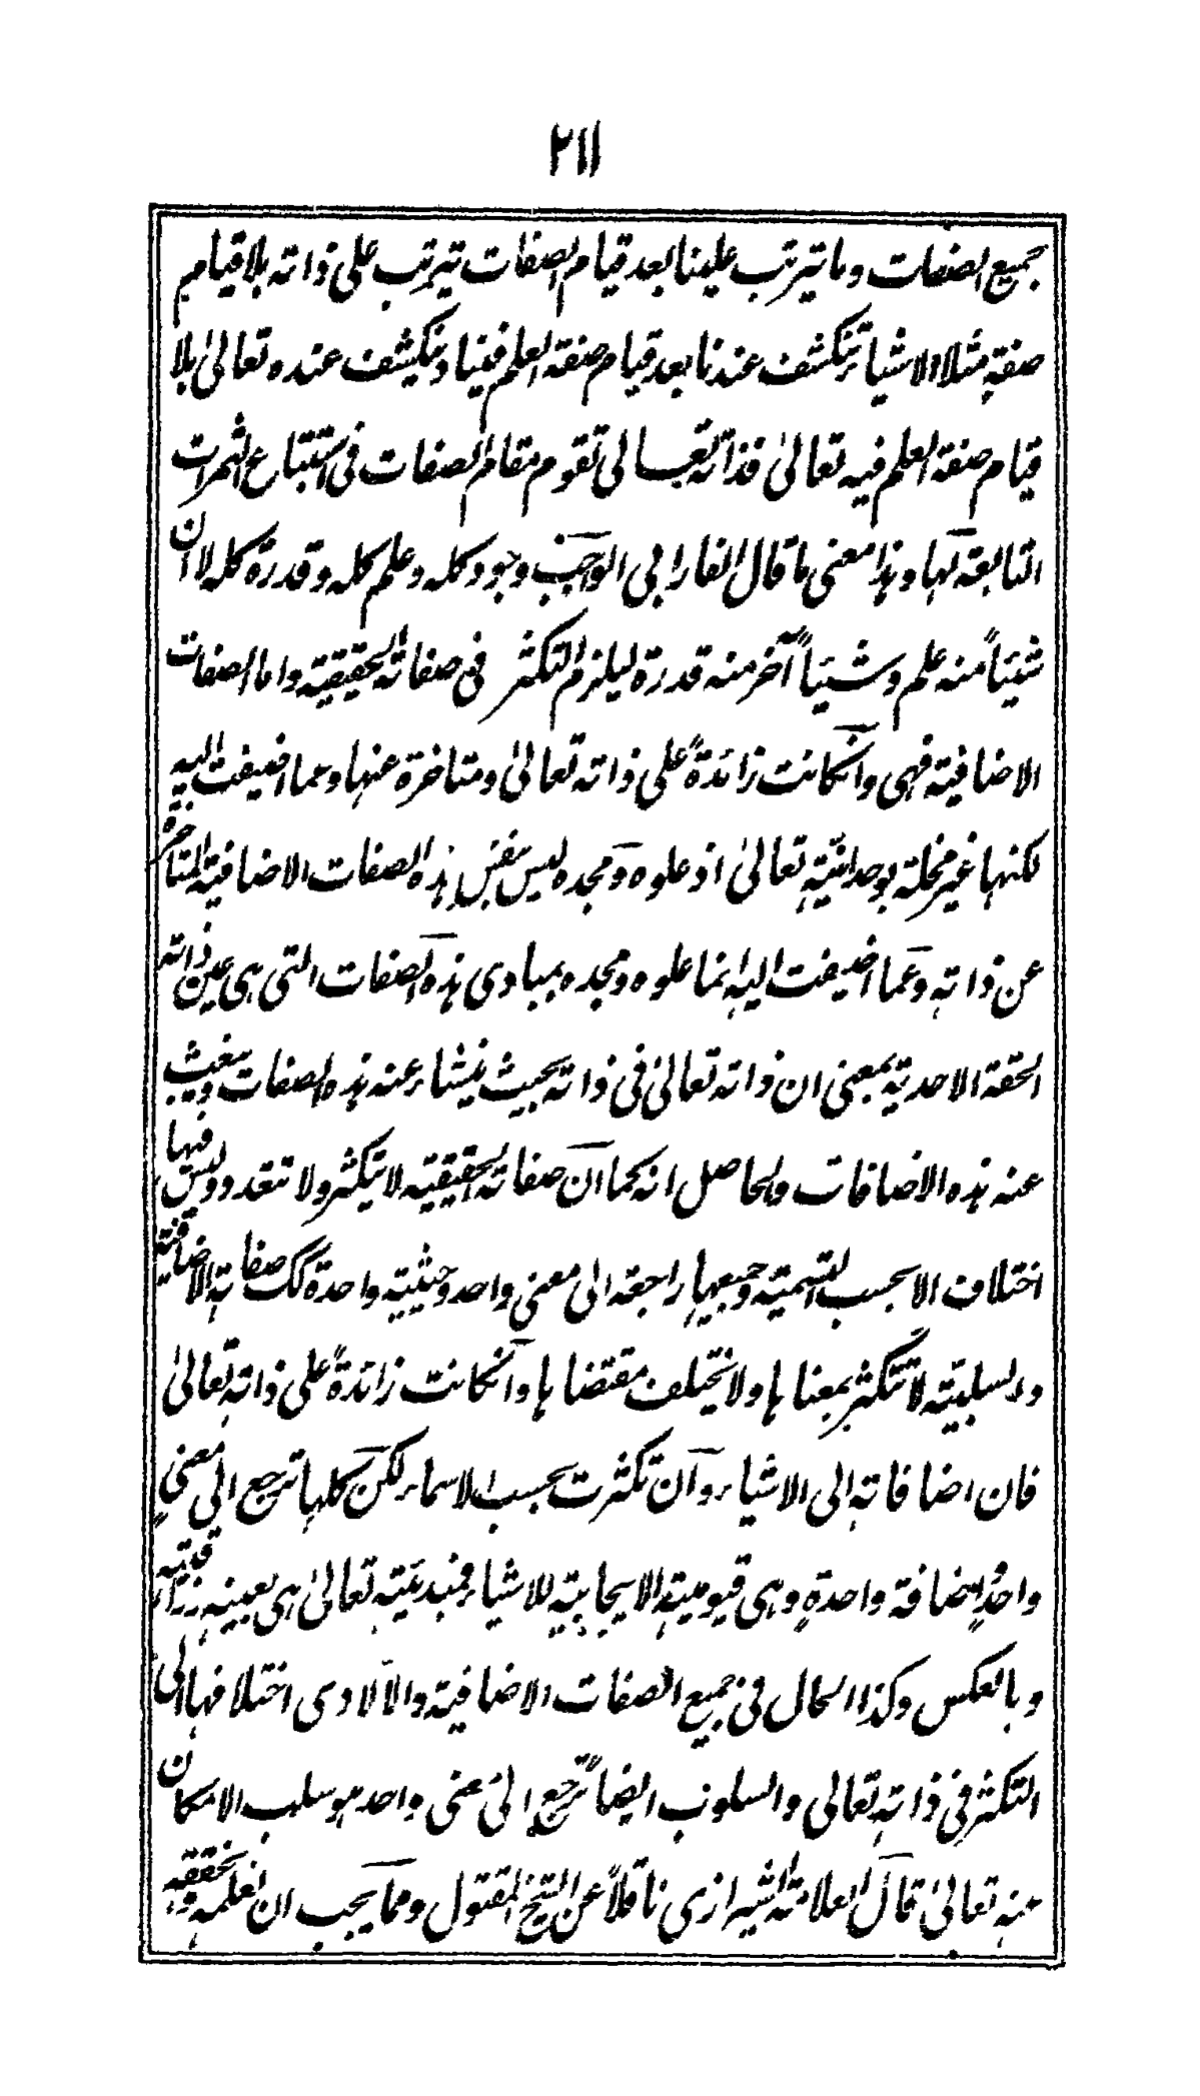 ٢١١
جميع الصفات وما يترتب علينا بعد قيام الصفات يترتب على ذاته بلا قيام
صفةٍ مثلا الاشياء تنكشف عندنا بعد قيام صفة العلم فينا وينكشف عنده تعالىٰ بلا
قيام صفة العلم فيه تعالىٰ فذاته تعالى تقوم مقام الصفات فى استتباع الثمرات
التابعة لها وهذا معنى ما قال الفارابى الواجب وجود كله وعلم كله وقدرة كله لا ان
شيئاً منه علم وشيئاً آخر منه قدرة ليلزم التكثر فى صفاته الحقيقية واما الصفات
الاضافية فهى وان كانت زائدةً على ذاته تعالىٰ ومتاخرة عنها وعما اضيفت اليه
لكنها غير مخلة بوحدانيته تعالىٰ اذ علوه ومجده ليس بنفس هذه الصفات الاضافية المتاخرة
عن ذاته وعما اضيفت اليه انما علوه ومجده بمبادى هذه الصفات التى هى عين ذاته
الحقة الاحدية بمعنى ان ذاته تعالىٰ فى ذاته بحيث ينشاء عنه هذه الصفات وينبعث
عنه هذه الاضافات والحاصل انه كما ان صفاته الحقيقية لا يتكثر ولا تتعدد وليس فيها
اختلاف الا بحسب التسمية وجميعها راجعة الى معنى واحد وحيثية واحدة كك صفاته الاضافية
والسلبية لا تتكثر بمعناها ولا يختلف مقتضاها وان كانت زائدةً على ذاته تعالىٰ
فان اضافاته الى الاشياء وان تكثرت بحسب الاسماء لكن كلها ترجع الى معنى
واحدٍ واضافة واحدةٍ وهى قيوميته الايجابية للاشياء فمبدئيته تعالىٰ هى بعينه رزاقيته
وبالعكس وكذا الحال فى جميع الصفات الاضافية والا لادى اختلافها الى
التكثر فى ذاته تعالى والسلوب ايضاً ترجع الى معنى واحد هو سلب الامكان
منه تعالىٰ قال العلامة الشيرازى ناقلاً عن الشيخ المقتول ومما يجب ان نعلمه ونحققه